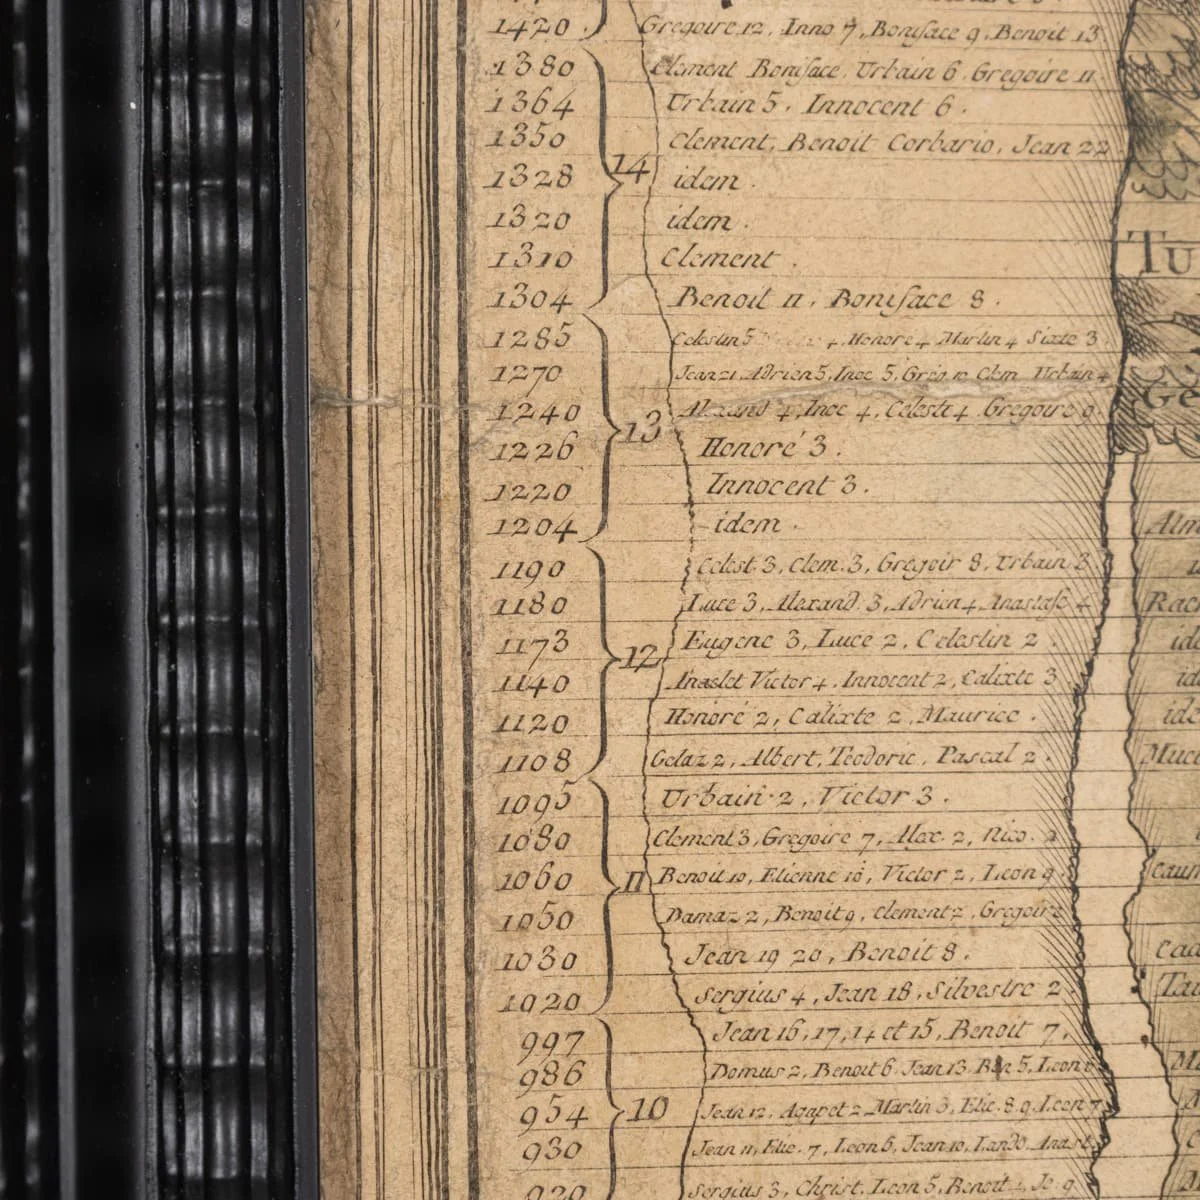 1420 Gregoire 12, Inno 7, Boniface 9, Benoit 13
1380 Clement Boniface, Urbain 6, Gregoire 11.
1364 Urbain 5, Innocent 6.
1350 Clement, Benoit Corbario, Jean 22
14
1328 idem.
1320 idem.
1310 Clement.
1304 Benoit 11, Boniface 8.
TU
1285 Celestin 5 4, Honore 4 Martin 4 Sixte 3
1270 Jean 21, Adrien 5, Inoc 5, Greg 10 Clem Urbain 4
GE
1240 Alexand 4, Inoc 4, Celest 4 Gregoire 9.
13
1226 Honoré 3.
1220 Innocent 3.
1204 idem. Alm
1190 Celest 3, Clem. 3, Gregoir 8, Urbain 3
1180 Luce 3, Alexand. 3, Adrien 4 Anastase 4 Rac
1173 Eugene 3, Luce 2, Celestin 2. id
12
1140 Anaclet Victor 4, Innocent 2, Calixte 3 id
1120 Honoré 2, Calixte 2, Maurice. ide
1108 Gelaz 2, Albert, Teodoric, Pascal 2. Muc
1095 Urbain 2, Victor 3.
1080 Clement 3, Gregoire 7, Alex. 2, Nico. 2
11
1060 Benoit 10, Etienne 10, Victor 2, Leon 9.
1050 Damaz 2, Benoit 9, Clement 2, Gregoire
1030 Jean 19 20, Benoit 8. Ca
1020 Sergius 4, Jean 18, Silvestre 2 Ta
997 Jean 16, 17, 14 et 15, Benoit 7,
986 Domus 2, Benoit 6, Jean 13, Ben 5, Leon M
954 Jean 12, Agapet 2 Martin 3, Etie. 8 9 Leon 7
10
930 Jean 11, Etie. 7, Leon 6, Jean 10, Lando Anast
920 Sergius 3, Christ, Leon 5, Benoit